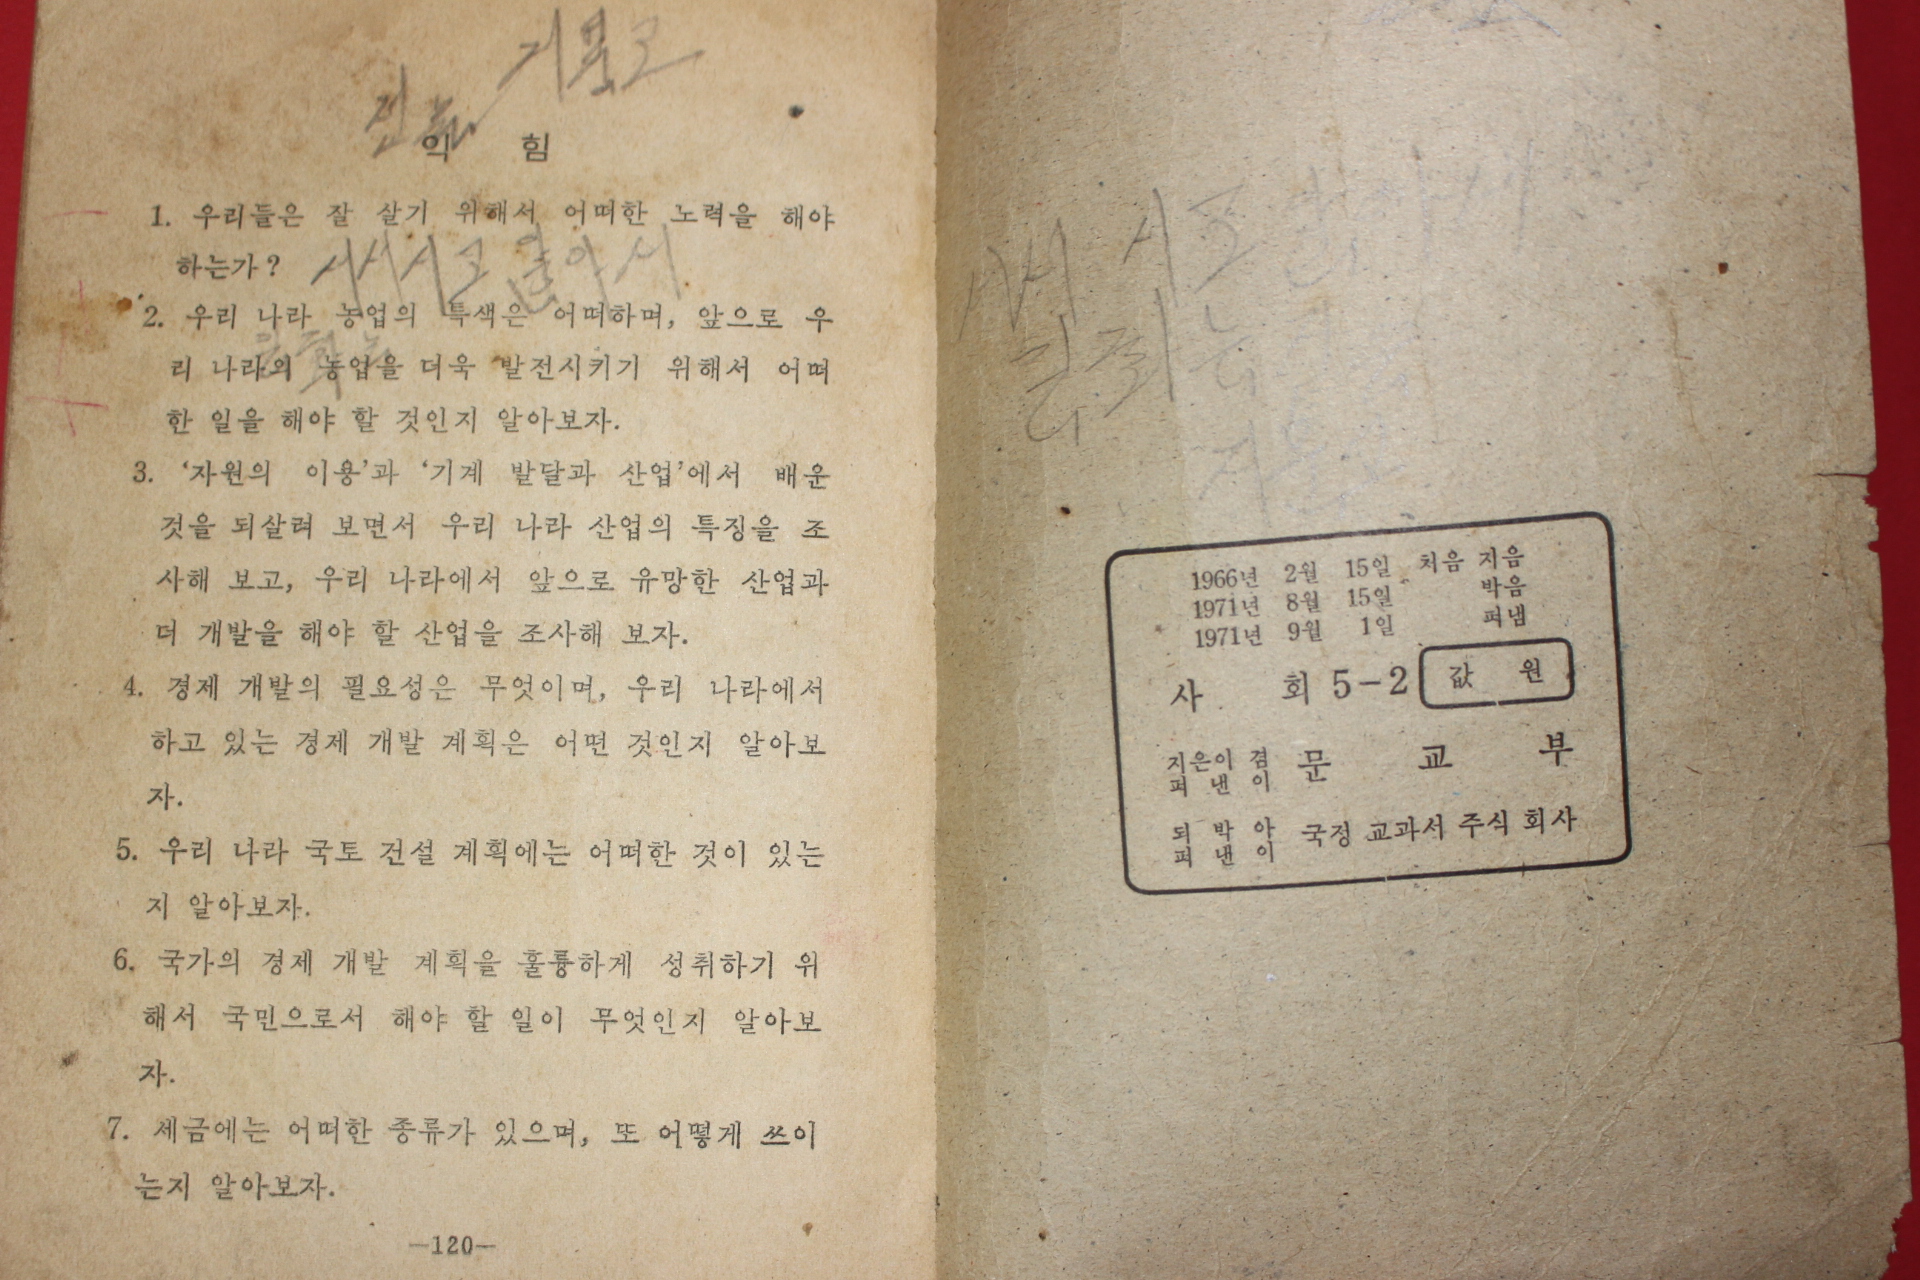 익 힘
1. 우리들은 잘 살기 위해서 어떠한 노력을 해야
하는가?
2. 우리 나라 농업의 특색은 어떠하며, 앞으로 우
리 나라의 농업을 더욱 발전시키기 위해서 어떠
한 일을 해야 할 것인지 알아보자.
3. ‘자원의 이용’과 ‘기계 발달과 산업’에서 배운
것을 되살려 보면서 우리 나라 산업의 특징을 조
사해 보고, 우리 나라에서 앞으로 유망한 산업과
더 개발을 해야 할 산업을 조사해 보자.
4. 경제 개발의 필요성은 무엇이며, 우리 나라에서
하고 있는 경제 개발 계획은 어떤 것인지 알아보
자.
5. 우리 나라 국토 건설 계획에는 어떠한 것이 있는
지 알아보자.
6. 국가의 경제 개발 계획을 훌륭하게 성취하기 위
해서 국민으로서 해야 할 일이 무엇인지 알아보
자.
7. 세금에는 어떠한 종류가 있으며, 또 어떻게 쓰이
는지 알아보자.
—120—
1966년 2월 15일 처음 지음
1971년 8월 15일 박음
1971년 9월 1일 펴냄
사 회 5-2 값 원
지은이 겸
펴 낸 이 문 교 부
되 박 아
펴 낸 이 국정 교과서 주식 회사